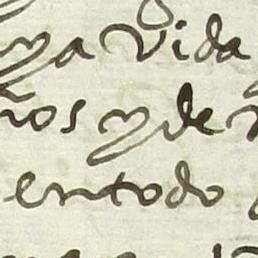 ya vida
ños y de
en todo